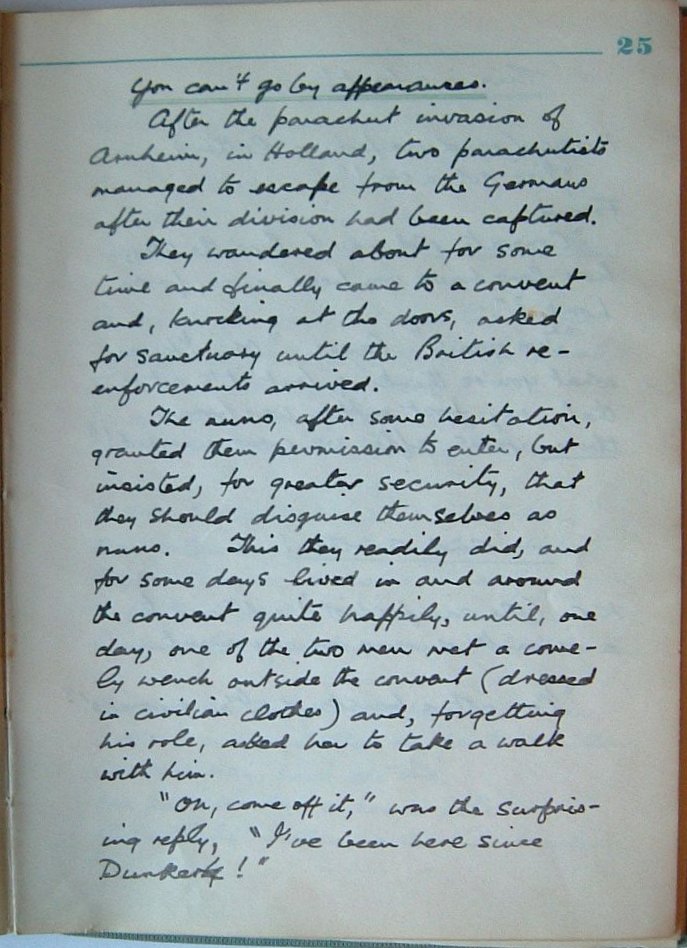 25
You can't go by appearances.
After the parachut invasion of
Arnheim, in Holland, two parachutists
managed to escape from the Germans
after their division had been captured.
They wandered about for some
time and finally came to a convent
and, knocking at the doors, asked
for sanctuary until the British re-
enforcements arrived.
The nuns, after some hesitation,
granted them permission to enter, but
insisted, for greater security, that
they should disguise themselves as
nuns. This they readily did, and
for some days lived in and around
the convent quite happily, until, one
day, one of the two men met a come-
ly wench outside the convent (dressed
in civilian clothes) and, forgetting
his role, asked her to take a walk
with him.
"Oh, come off it," was the surpris-
ing reply, "I've been here since
Dunkerk!"